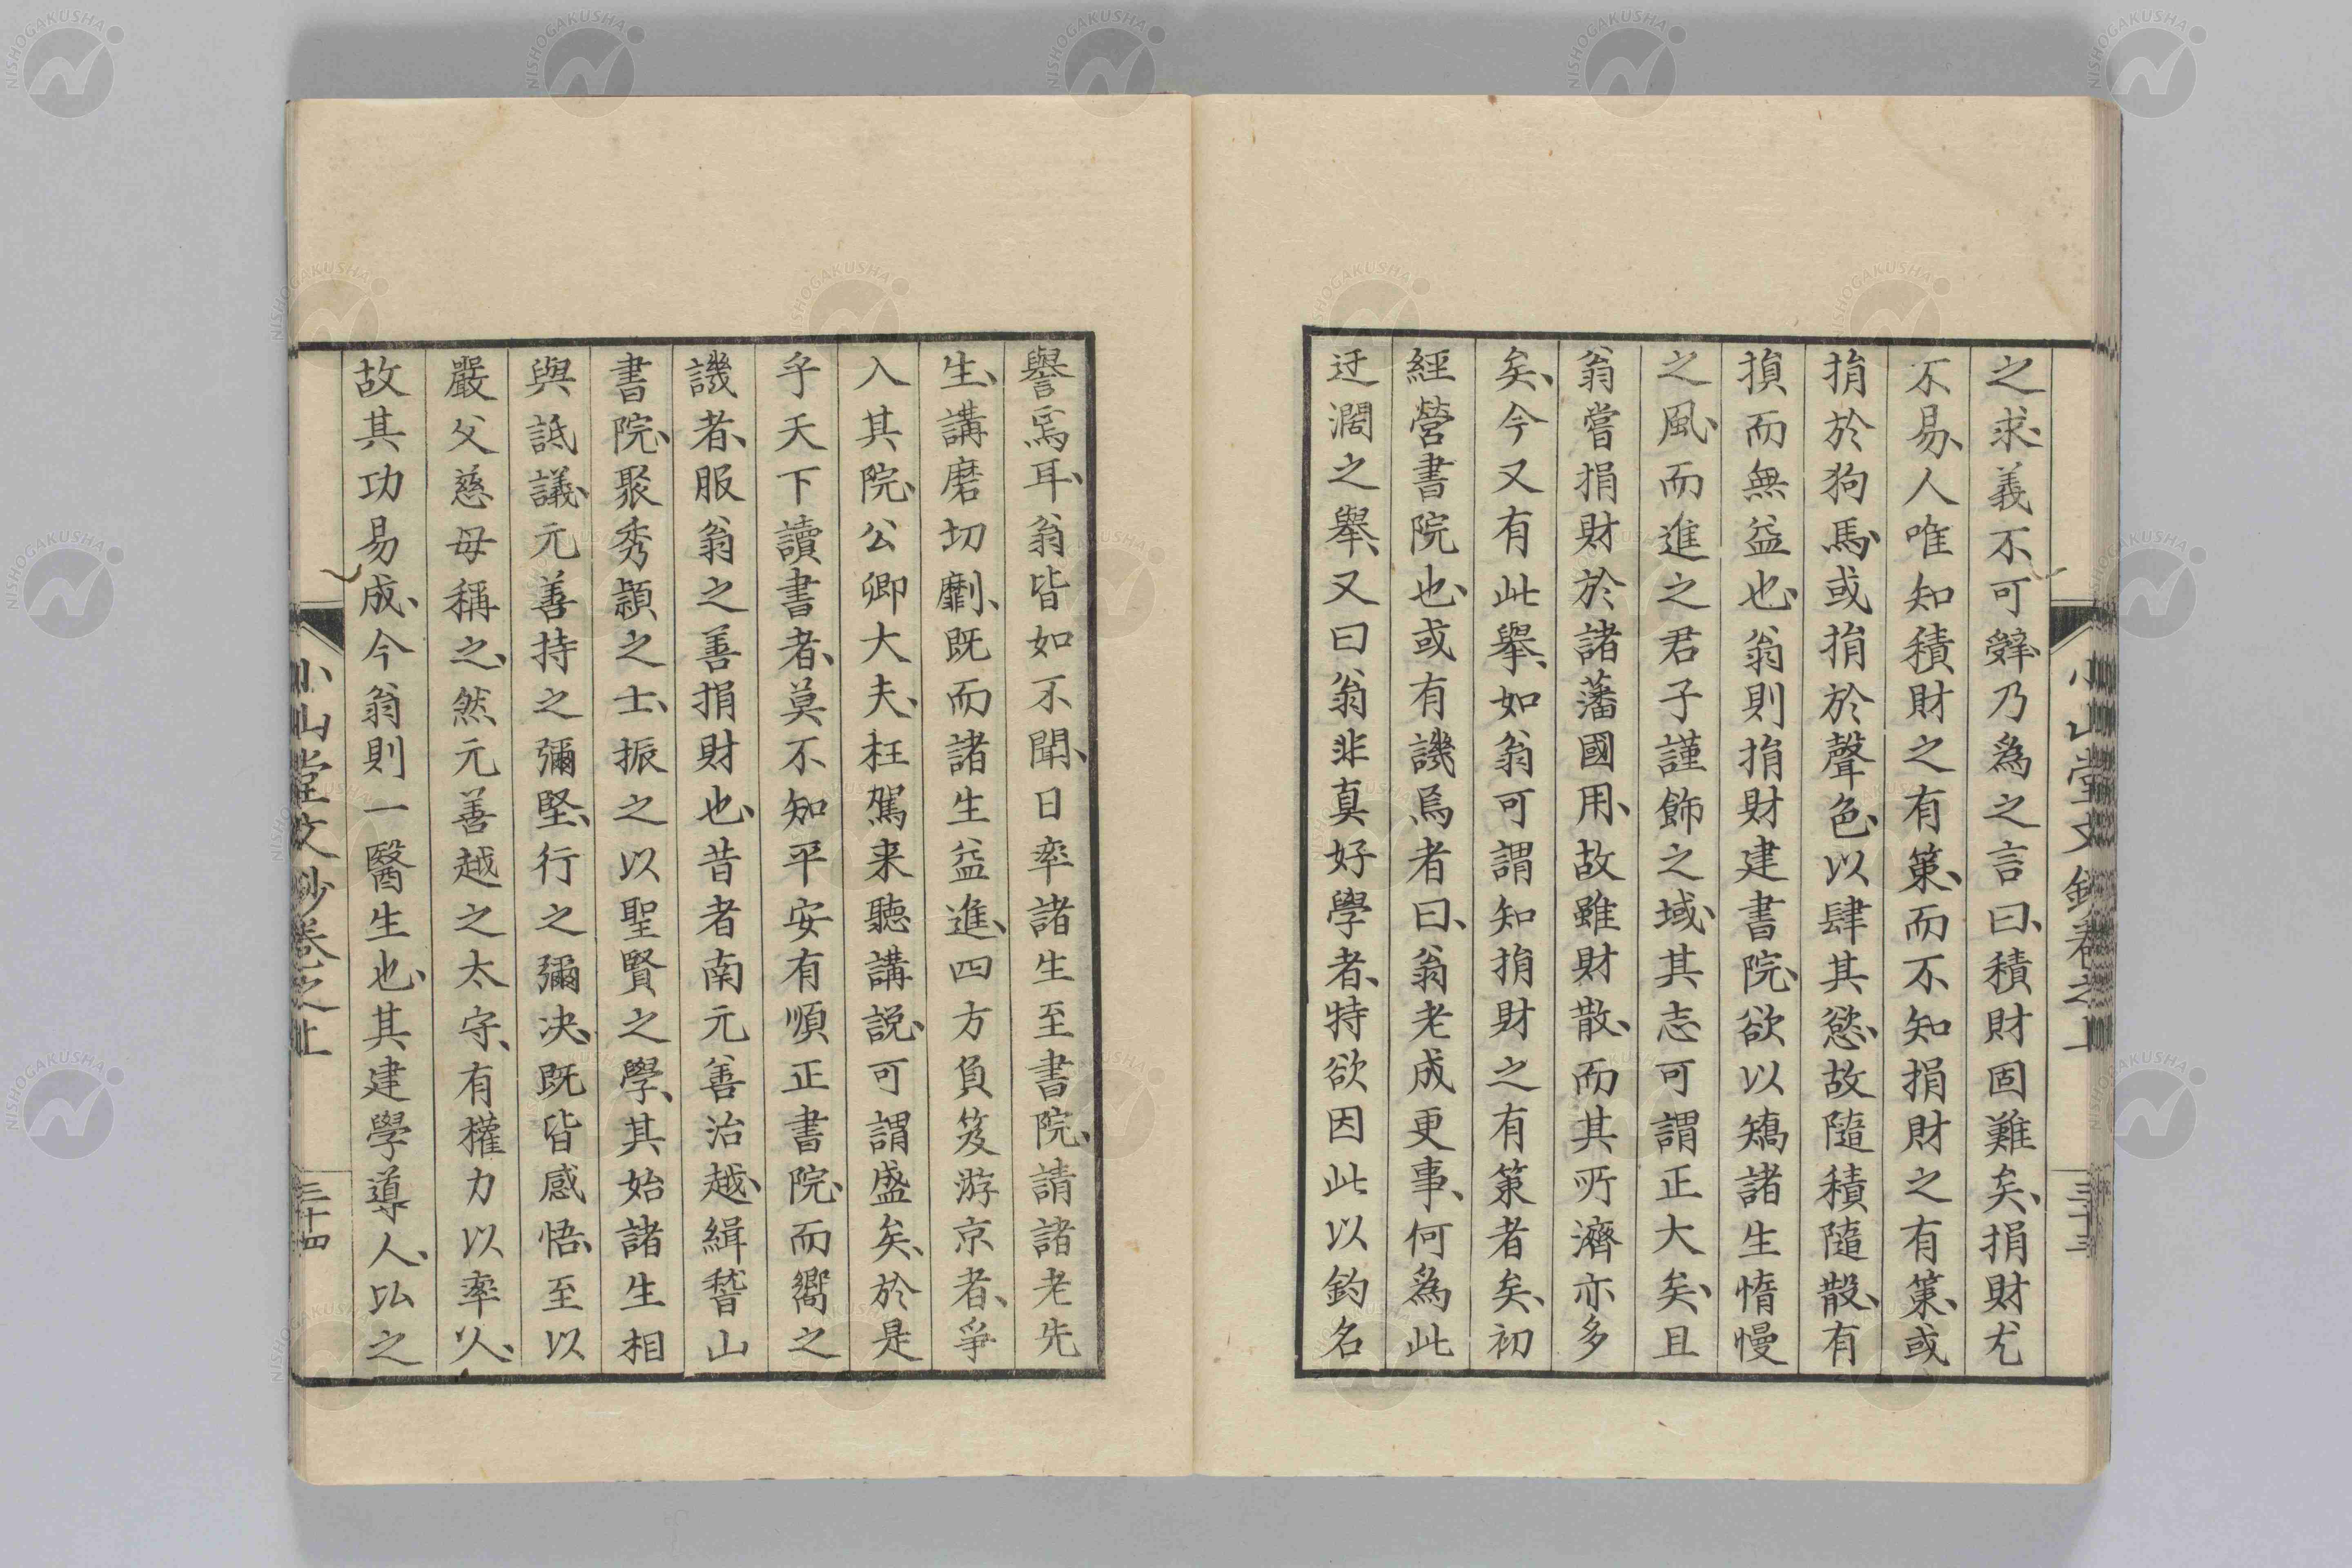 小山堂文鈔卷之上
三十三
之求、義不可辤、乃為之言曰、積財固難矣、捐財尤
不易、人唯知積財之有策、而不知捐財之有策、或
捐於狗馬、或捐於聲色、以肆其慾、故隨積隨散、有
損而無益也、翁則捐財建書院、欲以矯諸生惰慢
之風、而進之君子謹飾之域、其志可謂正大矣、且
翁嘗捐財於諸藩國用、故雖財散、而其所濟亦多
矣、今又有此擧、如翁可謂知捐財之有策者矣、初
經營書院也、或有譏焉者曰、翁老成更事、何為此
迂濶之擧、又曰翁非真好學者、特欲因此以釣名
譽焉耳、翁皆如不聞、日率諸生至書院、請諸老先
生、講磨切劘、既而諸生益進、四方負笈游京者、爭
入其院、公卿大夫、枉駕来聽講説、可謂盛矣、於是
乎天下讀書者、莫不知平安有順正書院、而嚮之
譏者、服翁之善捐財也、昔者南元善治越、緝嵆山
書院、聚秀頴之士、振之以聖賢之學、其始諸生相
與詆議、元善持之彌堅、行之彌决、既皆感悟、至以
嚴父慈母稱之、然元善越之太守、有權力以率人、
故其功易成、今翁則一醫生也、其建學導人、以之
小山堂文鈔卷之上
三十四